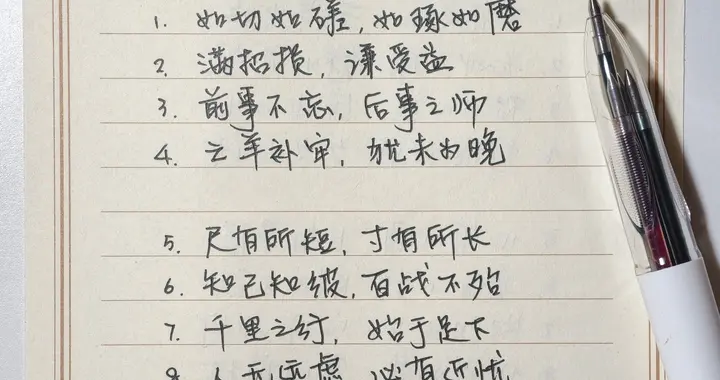 1. 如切如磋，如琢如磨
2. 满招损，谦受益
3. 前事不忘，后事之师
4. 亡羊补牢，犹未为晚
5. 尺有所短，寸有所长
6. 知己知彼，百战不殆
7. 千里之行，始于足下
8. 人无远虑，必有近忧